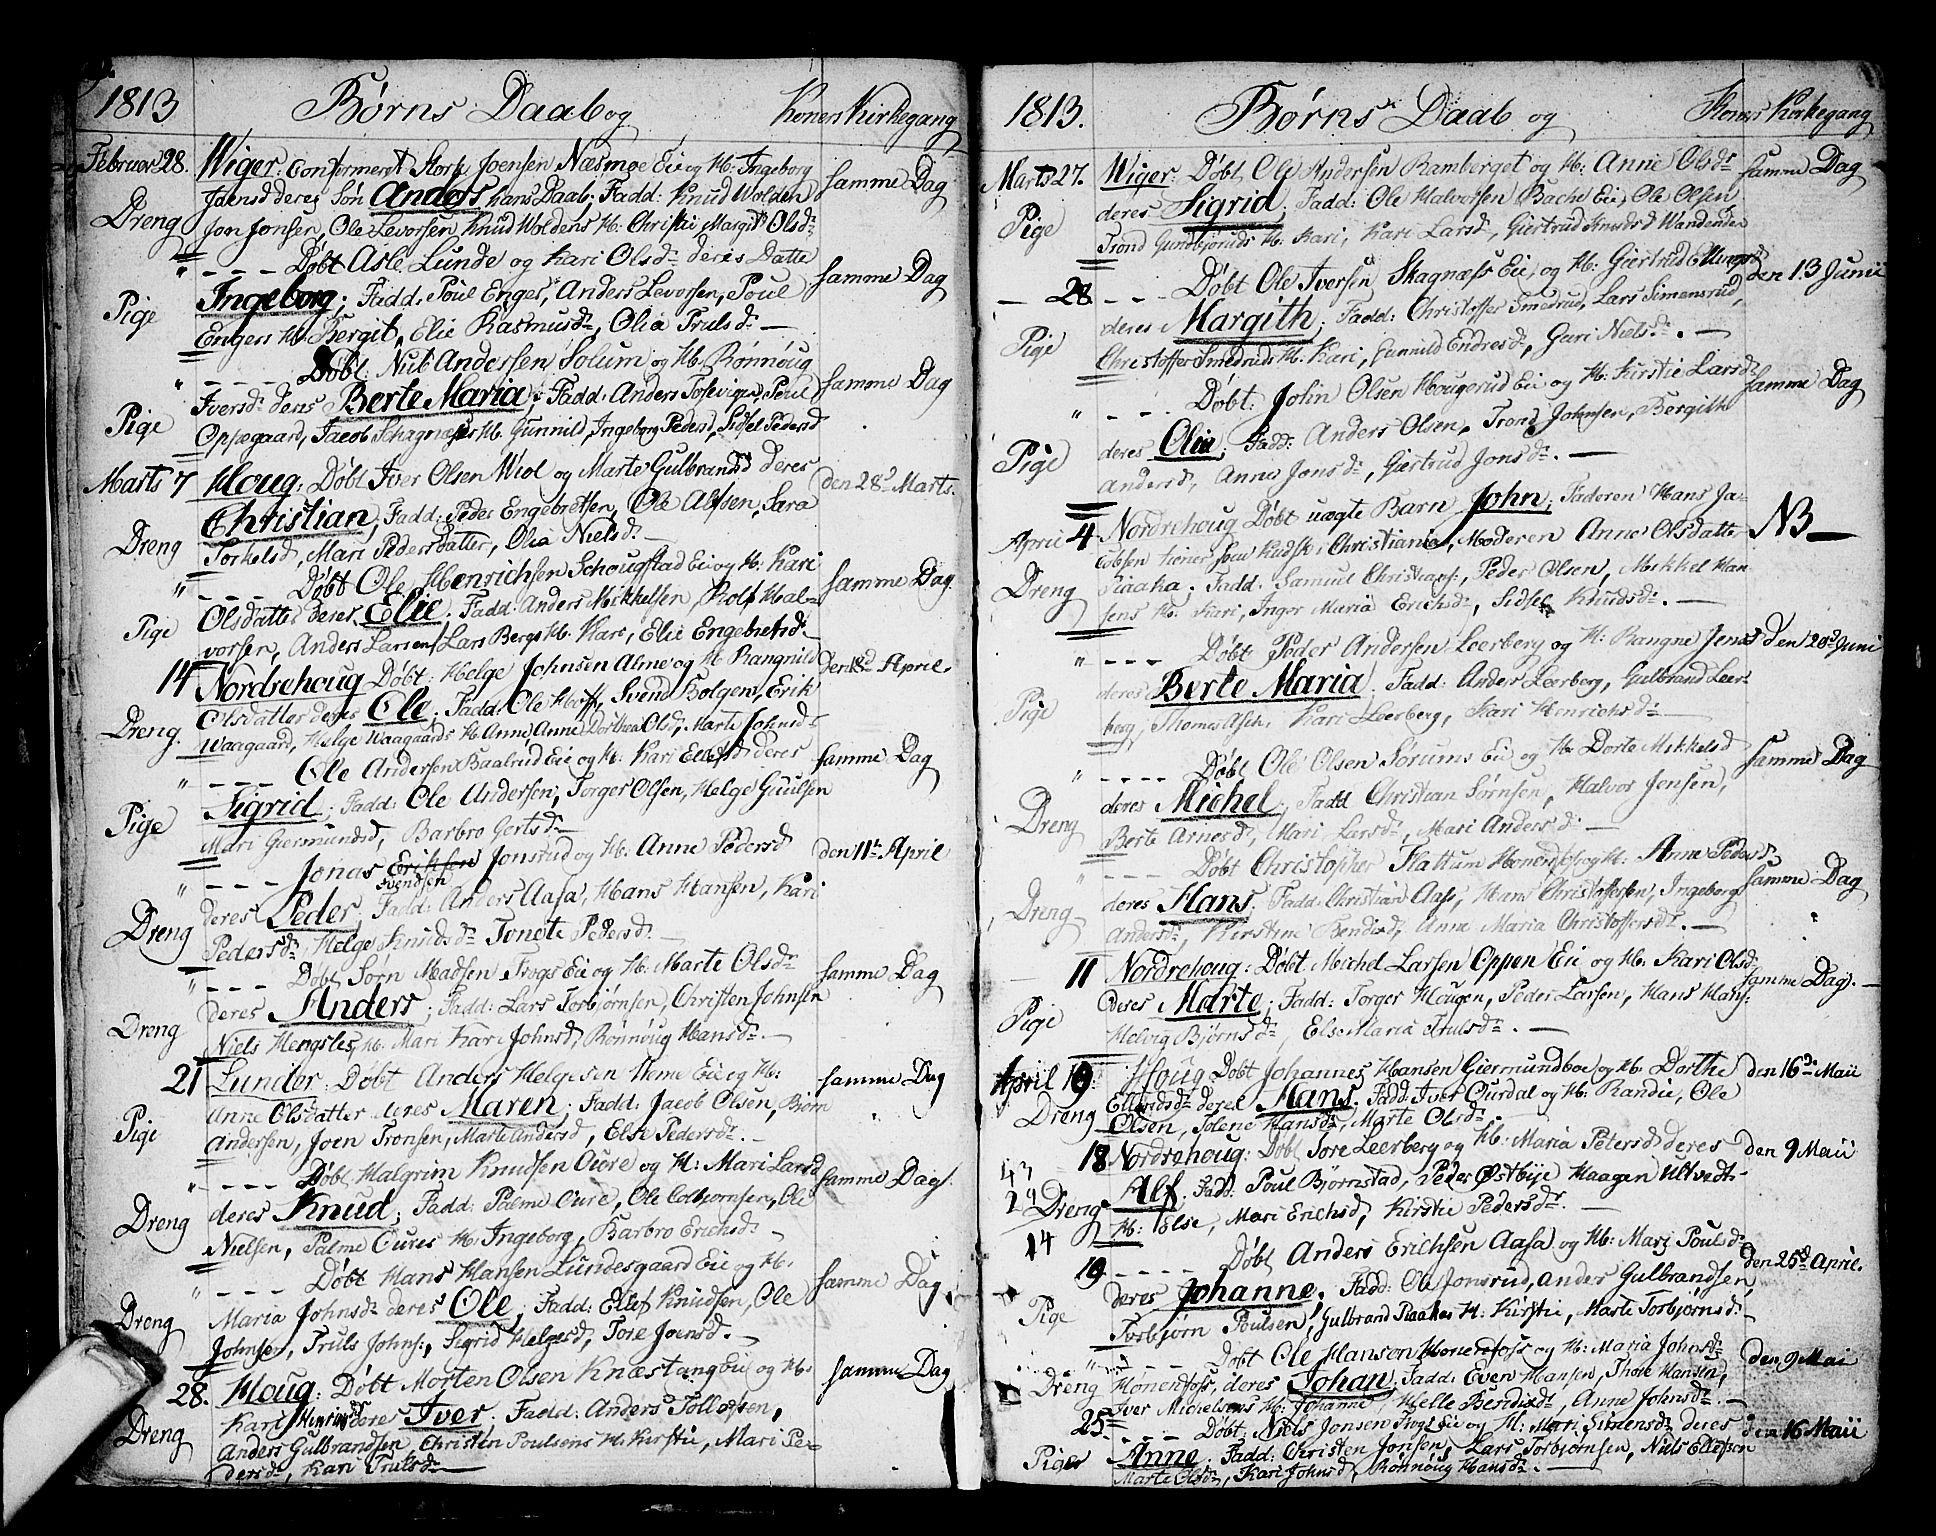 1813 Børns Daab og Koners Kirkegang
Februar 28. Wiger: Confermeret Stork Joensen Næsmoe Eie og H: Ingeborg samme Dag
Joensd deres Søn Anders hans Daab; Fadd: Knud Wolden
Dreng Jon Jonsen, Ole Levorsen Knud Woldens H: Christi Margit Olsdr
" - - - Døbt Asle Lunde og Kari Olsdr deres Datte samme Dag
Ingeborg; Fadd: Poul Enger, Anders Levorsen, Poul
Pige Engers H: Bergit, Elie Rasmusdr, Olia Trulsdr —
" - - - Døbt: Andersen Solum og H: Rønnoug samme Dag
Iversdr deres Berte Maria; Fadd: Anders Poul
Pige Oppegaard, Jacob Schagnæs H: Gunnild, Ingeborg Pedersd, Sidsel Pedersd
Marts 7 Houg: Døbt Iver Olsen Wiol og Marte Gulbrandsd deres den 28d Marts.
Christian, Fadd: Peder Engebretsen, Ole Alfsen, Sara
Dreng Torkelsd, Mari Pedersdatter, Olia Nielsdr —
" - - - Døbt Ole Henrichsen Schougstad Eie og H: Kari samme Dag.
Olsdatter deres Elie; Fadd: Anders Mikkelsen, Rolf Hal-
Pige vorsen, Anders Larsen, Lars Bergs H: Kari, Elie Engebretsdr
14 Nordrehoug Døbt: Helge Johnsen Alme og H: Rangnild den 18d April.
Olsdatter deres Ole; Fadd: Ole Hoff, Svend Erik
Dreng. Waagaard, Helge Waagaards H: Anne, Anne Dorthea Olsdr, Marte Johnsd
" - - - Ole Andersen Baalrud Eie og H: Kari Ellefsdr deres samme Dag
Sigrid; Fadd: Ole Andersen, Torger Olsen, Helge Guulsen
Pige Mari Giermundsd, Barbro Gortsdr
" - - - Jonas Erichsen Jonsrud og H: Anne Pedersd den 11te April
Svendsen
deres Peder; Fadd: Anders Aasa, Hans Hansen, Kari
Dreng Pedersdr, Helge Knudsdr Tonete Pedersd. —
" - - - Døbt Sørn Madsen Frogs Eie og H: Marte Olsdr samme Dag
deres Anders; Fadd: Lars Torbjørnsen, Christen Johnsen
Dreng Niels Hengsles H: Mari Kari Johnsd, Rønnoug Hansdr. —
21 Lunder: Døbt Anders Helgesen Eie og H: samme Dag
Anne Olsdatter deres Maren; Fadd: Jacob Olsen, Bjørn
Pige Andersen, Joen Tronsen, Marte Andersd, Else Pedersdr. —
" - - - Døbt Halgrim Knudsen Oure og H: Mari Larsd samme Dag.
deres Knud; Fadd: Palme Oure, Ole Colbjørnsen, Ole
Dreng Nielsen, Palme Oures H: Ingeborg, Barbro Erichsdr
" - - - Døbt Hans Hansen Lundesgaard Eie og H: samme Dag.
Maria Johnsdr deres Ole; Fadd: Ellef Knudsen, Ole
Dreng Johnsen, Truls Johns:, Sigrid Helgesd, Tore Joensd. —
28. Houg: Døbt Morten Olsen Knæstang Eie og H: samme Dag
Kari Henrichsd deres Iver. Fadd: Anders Tollefsen,
Dreng Anders Gulbrandsen, Christen Poulsens H: Kirstie, Mari Pe-
dersdr, Kari Trulsdr —
1813. Børns Daab og Koners Kirkegang
Marts 27. Wiger: Døbt Ole Andersen Ramberget og H: Anne Olsdr samme Dag
deres Sigrid; Fadd: Ole Halvorsen Bache Eie, Ole Olsen
Pige Trond Gundbjørruds H: Kari, Kari Larsd, Giertrud Knudsd
— 28 - - - Døbt Ole Iversen Skagnæss Eie og H: Giertrud Ellingsd den 13 Junii
deres Margith; Fadd: Christoffer Smedrud, Lars Simensrud,
Pige Christoffer Smedruds H: Kari, Gunnild Endresd, Guri Nielsdr. —
" - - - Døbt: John Olsen Hougerud Eie og H: Kirstie Larsdr samme Dag
deres Olia; Fadd: Anders Olsen, Trond Johnsen, Bergithe
Pige Andersd, Anne Jonsdr, Giertrud Jonsdr. —
April 4 Nordrehoug Døbt uægte Barn John; Faderen Hans Ja- NB —
cobsen tiener som Kudsk i Christiania, Moderen Anne Olsdatter
Dreng Raaka; Fadd: Samuel Christians:, Peder Olsen, Mikkel Han-
sens H: Kari, Inger Maria Erichsdr, Sidsel Knudsdr. —
" - - - Døbt Peder Andersen Leerberg og H: Rangne Jensd den 20d Juni
deres Berte Maria; Fadd: Ander Leerberg, Gulbrand Leer-
Pige berg, Thomas Asch, Kari Leerberg, Kari Henrichsdr —
" - - - Døbt Ole Olsen Sørums Eie og H: Dorte Mikkelsd samme Dag
deres Michel; Fadd Christian Sørnsen, Halvor Jensen,
Dreng Berte Arnesdr, Mari Larsdr, Mari Andersdr —
" - - - Døbt Christopher Flattum Hønenfoss og H: Anne Pedersdr samme Dag
deres Hans. Fadd: Christian Aass, Hans Christoffersen, Ingeborg
Dreng Andersdr, Kirstine Bendixd, Anne Maria Christoffersdr. —
11 Nordrehoug: Døbt Michel Larsen Oppen Eie og H: Kari Olsdr samme Dag. —
deres Marte; Fadd: Torger Hougen, Peder Larsen, Hans Hans:
Pige Helvig Bjørnsdr, Else Maria Trulsdr. —
April 19. Houg Døbt Johannes Hansen Giermundboe og H: Dorthe den 16de Maii
Dreng Ellendsdr deres Hans. Fadd: Iver Ourdal og H: Randie, Ole
Olsen, Solene Hansdr, Marte Olsdr.
18 Nordrehoug: Døbt Tore Leerberg og H: Maria Petersd deres den 9 Maii
43
29 Dreng Alf. Fadd: Poul Bjørnstad, Peder Østbye Haagen Ultvedt-
14 H: Else, Mari Erichsd, Kirstie Pedersdr. —
19 - - - - Døbt Anders Erichsen Aasa og H: Mari Poulsdr den 25d April.
deres Johanne. Fadd: Ole Jonsrud, Anders Gulbrandsen,
Pige Torbjørn Poulsen, Gulbrand Raakes H: Kirstie, Marte Torbjørnsdr
" - - - Døbt Ole Hanson Hønenfoss og H: Maria Johnsdr den 9 Mai
Dreng Hønenfoss, deres Johan; Fadd: Even Hansen, Thore Hansen,
Iver Michelsens H: Johanne, Helle Bendixdr, Anne Johnsdr. —
25. - - - Døbt: Niels Jonsen Frogs Eie og H: Mari Simensdr deres den 16 Maii
Piger Anne Fadd: Christen Jonsen, Lars Torbjørnsen, Niels Ellefsen
Marte Olsdr, Kari Johnsd, Rønnoug Hansdr. —